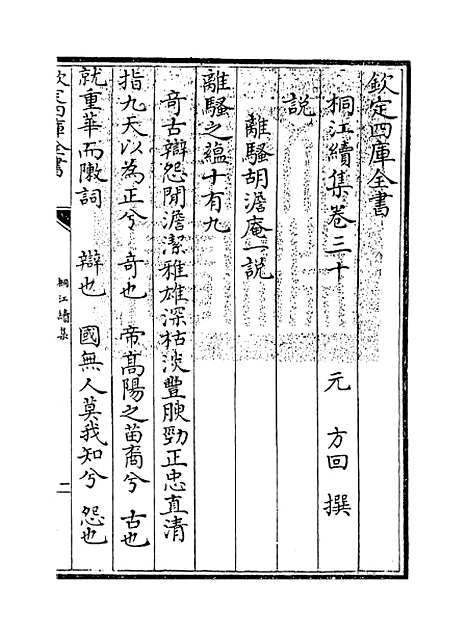 欽定四庫全書
桐江續集卷三十
元 方回 撰
說
離騷胡澹庵一說
離騷之蘊十有九
奇古辯怨閒澹潔雅雄深枯淡豐腴勁正忠直清
指九天以為正兮 奇也 帝高陽之苗裔兮 古也
就重華而敶詞 辯也 國無人莫我知兮 怨也
欽定四庫全書
桐江續集
二